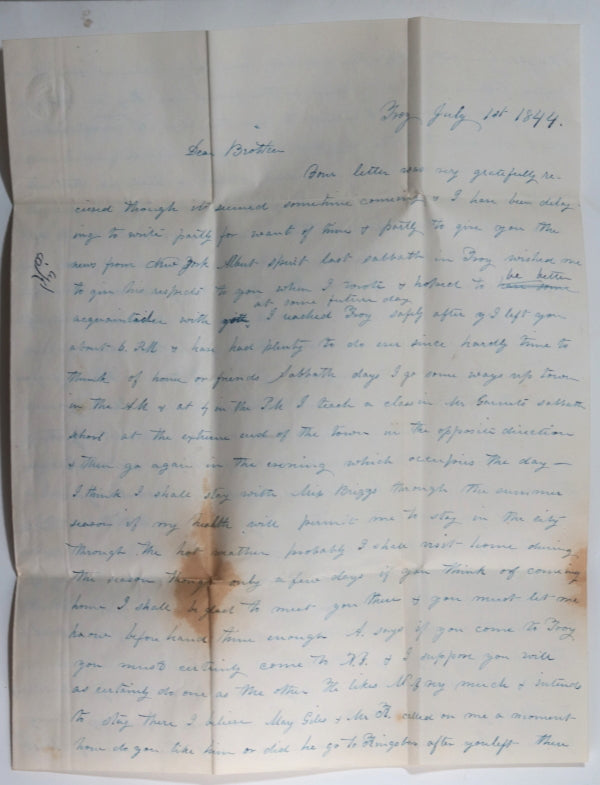 Troy July 1st 1844.
Dear Brother
Your letter was very gratefully re-
cieved though it seemed sometime coming & I have been delay-
ing to write partly for want of time & partly to give you the
news from New York spent last sabbath in Troy wished me
to give his respects to you when I wrote & hoped to have some be better
at some future day
acquainted with you. I reached Troy safely after I left you
about 6. P.M & have had plenty to do ever since hardly time to
think of home or friends Sabbath days I go some ways up town
in the A.M & at 4 in the P.M I teach a class in Mr sabbath
school at the extreme end of the town in the opposite direction
& then go again in the evening which occupies the day —
I think I shall stay with Miss Briggs through the summer
season if my health will permit me to stay in the city
through the hot weather probably I shall visit home during
the season though only a few days if you think of coming
home I shall be glad to meet you there & you must let me
know before hand time enough A. says if you come to Troy
you must certainly come to N.Y. & I suppose you will
as certainly do one as the other He likes N.Y very much & intends
to stay there I believe May Giles & Mr R. called on me a moment
how do you like him or did he go to Kingsbro after you left there